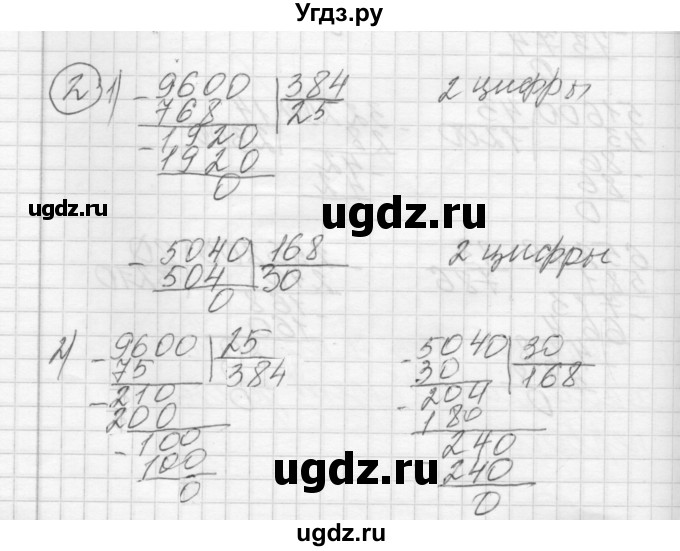 Угдз.ру
2 1) - 9600 | 384 2 цифры
768 | 25
- 1920
1920
0
ugdz.ru ugdz.ru ugdz.ru
- 5040 | 168 2 цифры
504 | 30
0
2) - 9600 | 25
75 | 384
- 210
200
- 100
100
0
- 5040 | 30
30 | 168
- 204
180
240
240
0
ugdz.ru
ugdz.ru
ugdz.ru